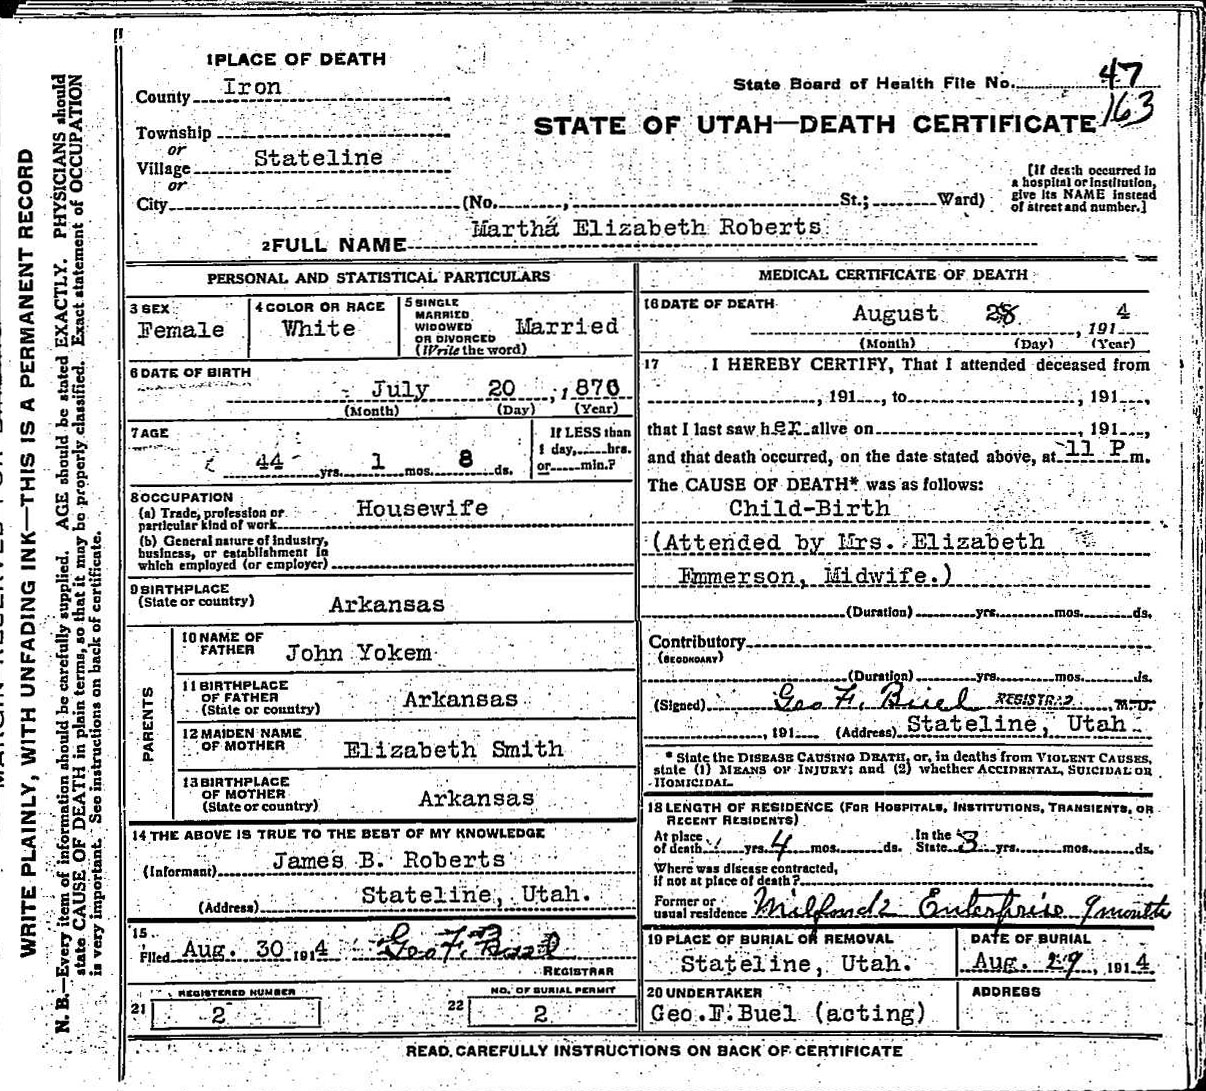 1 PLACE OF DEATH
County Iron
State Board of Health File No. 47
163
Township
or
Village Stateline
or
City (No. , St.; Ward)
STATE OF UTAH—DEATH CERTIFICATE
[If death occurred in
a hospital or institution,
give its NAME instead
of street and number.]
2 FULL NAME Martha Elizabeth Roberts
PERSONAL AND STATISTICAL PARTICULARS
3 SEX
Female
4 COLOR OR RACE
White
5 SINGLE
MARRIED
WIDOWED
OR DIVORCED
(Write the word)
Married
6 DATE OF BIRTH
July 20, 1870
(Month) (Day) (Year)
7 AGE
44 yrs. 1 mos. 8 ds.
If LESS than
1 day, hrs.
or min.?
8 OCCUPATION
(a) Trade, profession or
particular kind of work Housewife
(b) General nature of industry,
business, or establishment in
which employed (or employer)
9 BIRTHPLACE
(State or country) Arkansas
PARENTS
10 NAME OF
FATHER John Yokem
11 BIRTHPLACE
OF FATHER
(State or country) Arkansas
12 MAIDEN NAME
OF MOTHER Elizabeth Smith
13 BIRTHPLACE
OF MOTHER
(State or country) Arkansas
14 THE ABOVE IS TRUE TO THE BEST OF MY KNOWLEDGE
(Informant) James B. Roberts
(Address) Stateline, Utah.
15
Filed Aug. 30 1914 Geo. F. Buel
REGISTRAR
21 REGISTERED NUMBER
2
22 NO. OF BURIAL PERMIT
2
MEDICAL CERTIFICATE OF DEATH
16 DATE OF DEATH
August 28, 1914
(Month) (Day) (Year)
17 I HEREBY CERTIFY, That I attended deceased from
, 191 , to , 191 ,
that I last saw her alive on , 191 ,
and that death occurred, on the date stated above, at 11 P m.
The CAUSE OF DEATH* was as follows:
Child-Birth
(Attended by Mrs. Elizabeth
Emmerson, Midwife.)
(Duration) yrs. mos. ds.
Contributory
(SECONDARY)
(Duration) yrs. mos. ds.
(Signed) Geo F. Buel REGISTRAR M.D.
, 191 (Address) Stateline, Utah
* State the DISEASE CAUSING DEATH, or, in deaths from VIOLENT CAUSES,
state (1) MEANS OF INJURY; and (2) whether ACCIDENTAL, SUICIDAL OR
HOMICIDAL.
18 LENGTH OF RESIDENCE (FOR HOSPITALS, INSTITUTIONS, TRANSIENTS, OR
RECENT RESIDENTS)
At place
of death yrs. 4 mos. ds. In the
State 3 yrs. mos. ds.
Where was disease contracted,
if not at place of death?
Former or
usual residence Milford 2 Enterprise 9 months
19 PLACE OF BURIAL OR REMOVAL
Stateline, Utah.
DATE OF BURIAL
Aug. 29, 1914
20 UNDERTAKER
Geo. F. Buel (acting)
ADDRESS
READ CAREFULLY INSTRUCTIONS ON BACK OF CERTIFICATE
WRITE PLAINLY, WITH UNFADING INK—THIS IS A PERMANENT RECORD
N. B.—Every item of information should be carefully supplied. AGE should be stated EXACTLY. PHYSICIANS should
state CAUSE OF DEATH in plain terms, so that it may be properly classified. Exact statement of OCCUPATION
is very important. See instructions on back of certificate.